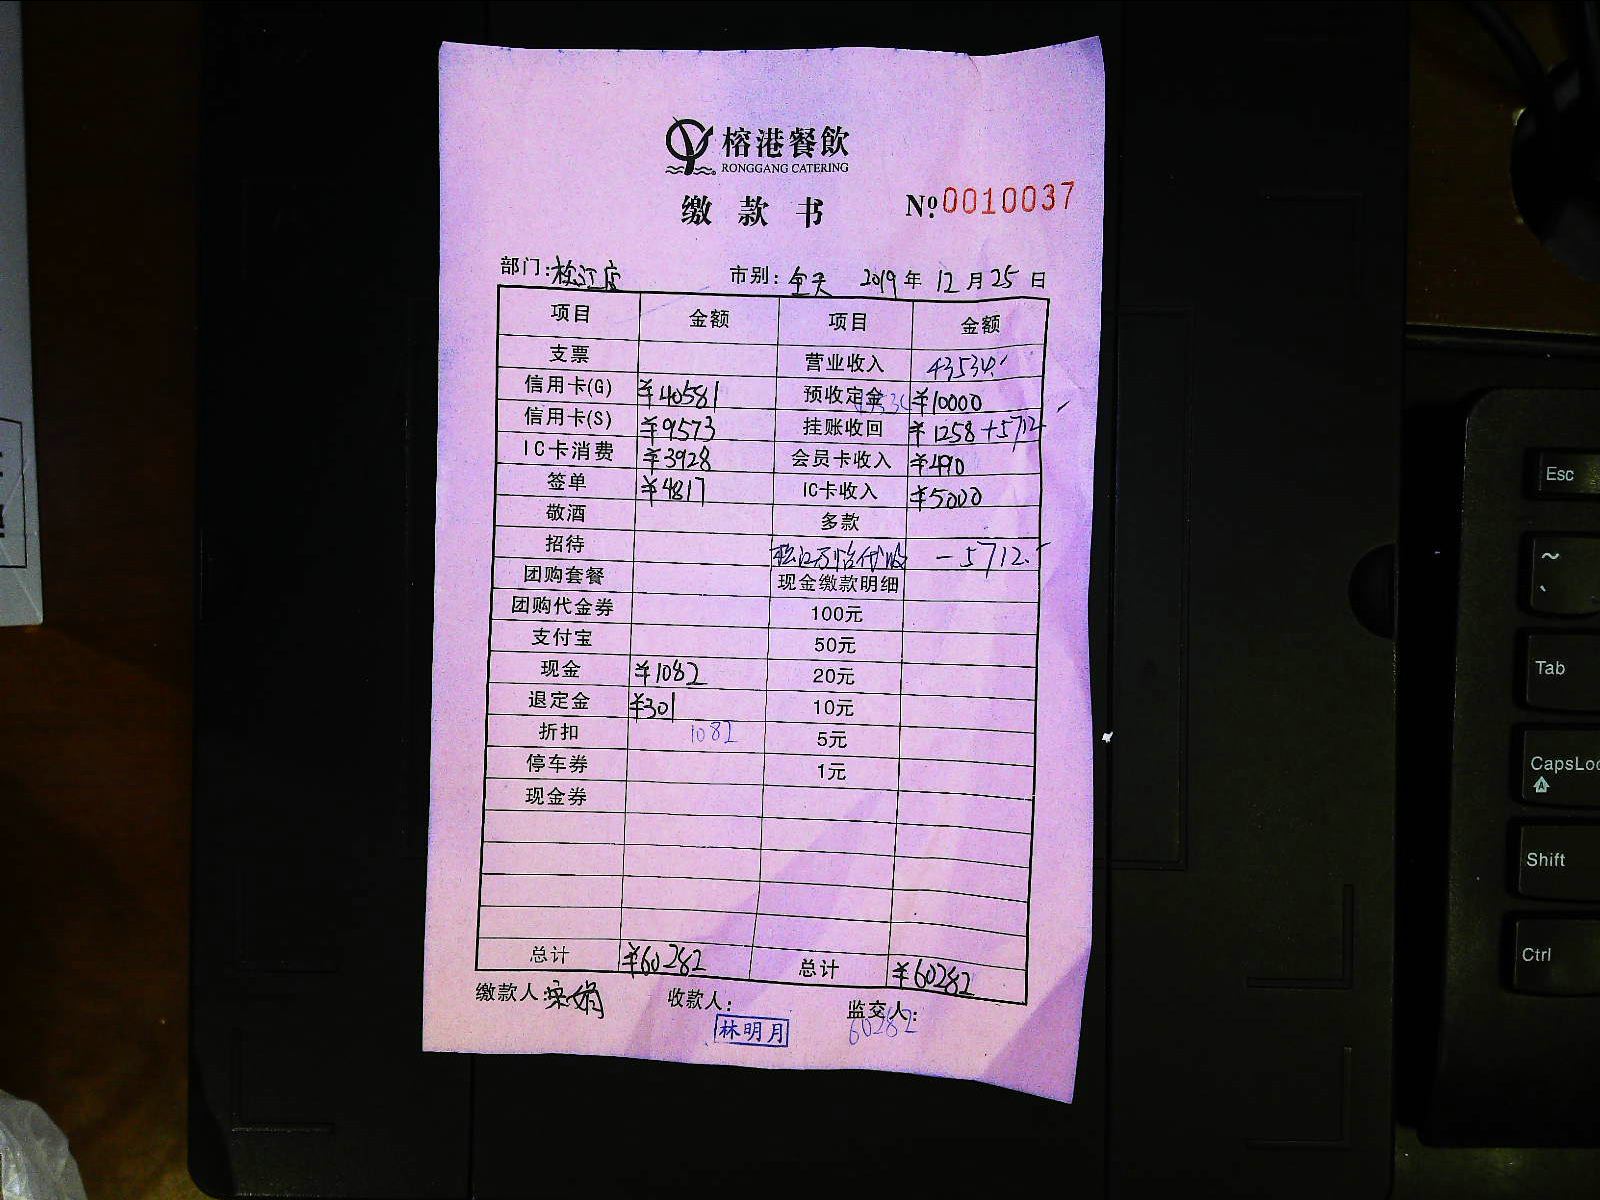 榕港餐飲
RONGGANG CATERING
缴款书 №0010037
部门:松江店 市别:全天 2019年12月25日
项目 金额 项目 金额
支票 营业收入 43534.
信用卡(G) ¥40581 预收定金 ¥10000
信用卡(S) ¥9573 挂账收回 ¥1258+5712
IC卡消费 ¥3928 会员卡收入 ¥490
签单 ¥4817 IC卡收入 ¥5000
敬酒 多款
招待 松江万怡代收 -5712.
团购套餐 现金缴款明细
团购代金券 100元
支付宝 50元
现金 ¥1082 20元
退定金 ¥301 10元
折扣 1082 5元
停车券 1元
现金券
总计 ¥60282 总计 ¥60282
缴款人: 收款人: 监交人:
林明月 60282
Esc
~
、
Tab
CapsLoc
Shift
Ctrl